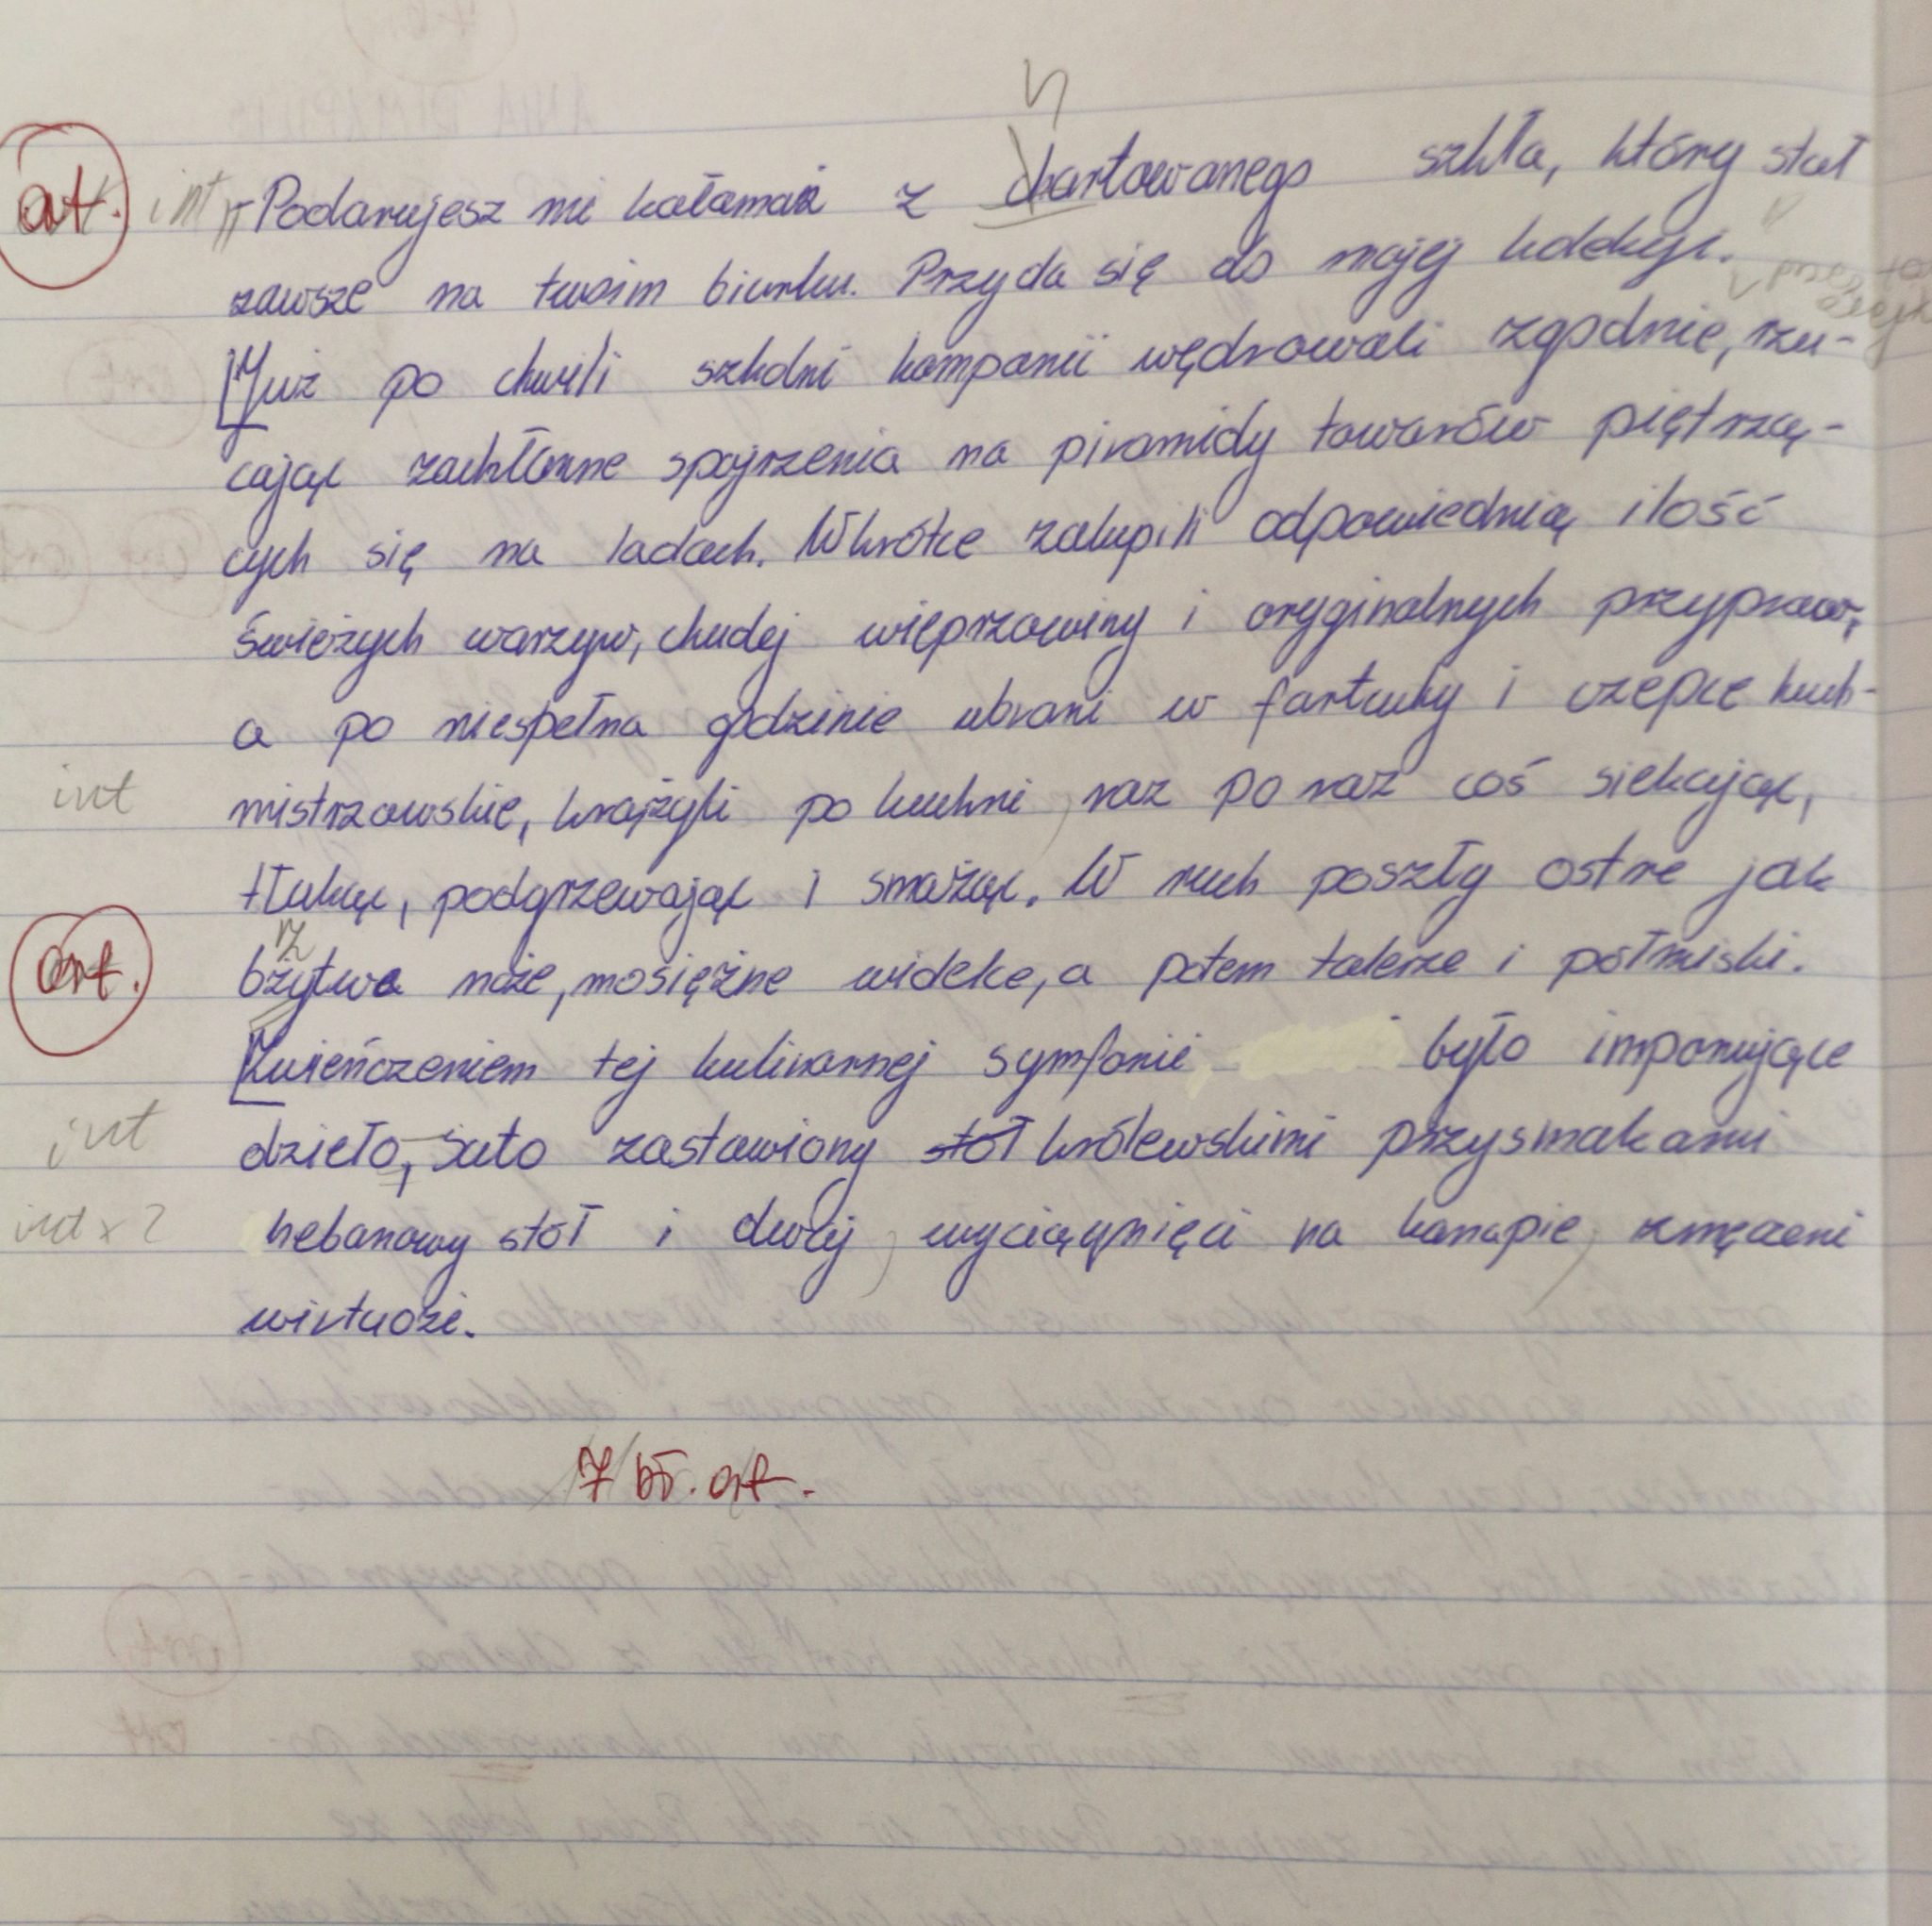 ort. int „Podarujesz mi kałamaż z chartowanego szkła, który stał
zawsze na twoim biurku. Przyda się do mojej kolekcji.
Już po chwili szkolni kompanii wędrowali zgodnie, rzu-
cając zachłanne spojrzenia na piramidy towarów piętrzą-
cych się na ladach. Wkrótce zakupili odpowiednią ilość
świeżych warzyw, chudej wieprzowiny i oryginalnych przypraw,
a po niespełna godzinie ubrani w fartuchy i czepce kuch-
int mistrzowskie, krążyli po kuchni, raz po raz coś siekając,
tłukąc, podgrzewając i smażąc. W ruch poszły ostre jak
rz
ort. bżytwa noże, mosiężne widelce, a potem talerze i półmiski.
Zwieńczeniem tej kulinarnej symfonii, było imponujące
int dzieło, suto zastawiony stół królewskimi przysmakami
int x 2 hebanowy stół i dwaj, wyciągnięci na kanapie, zmęczeni
wirtuozi.
7 bł. ort.